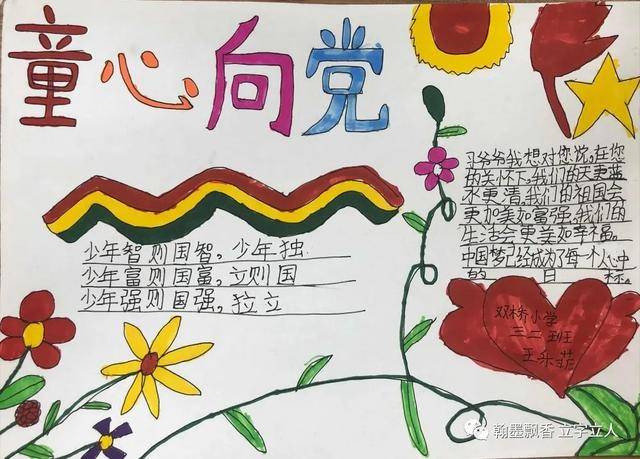 童心向党
少年智则国智，少年独
少年富则国富，立则国
少年强则国强，独立
习爷爷我想对您说，在您
的关怀下，我们的天更蓝
水更清，我们的祖国会
更加美如富强，我们的
生活会更美如幸福。
中国梦已经成为了每一个人心中
的 日 标。
双桥小学
三二班
翰墨飘香 立字立人